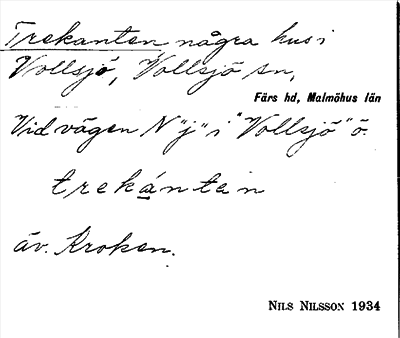 Trekanten några hus i
Vollsjö, Vollsjö sn,
Färs hd, Malmöhus län
Vid vägen N "j" i "Vollsjö" ö.
trekánten
äv. Kroken.
NILS NILSSON 1934